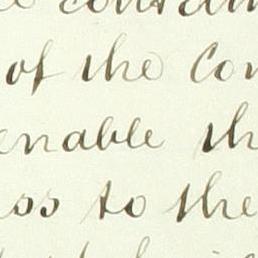 of the Con
enable th
ss to the